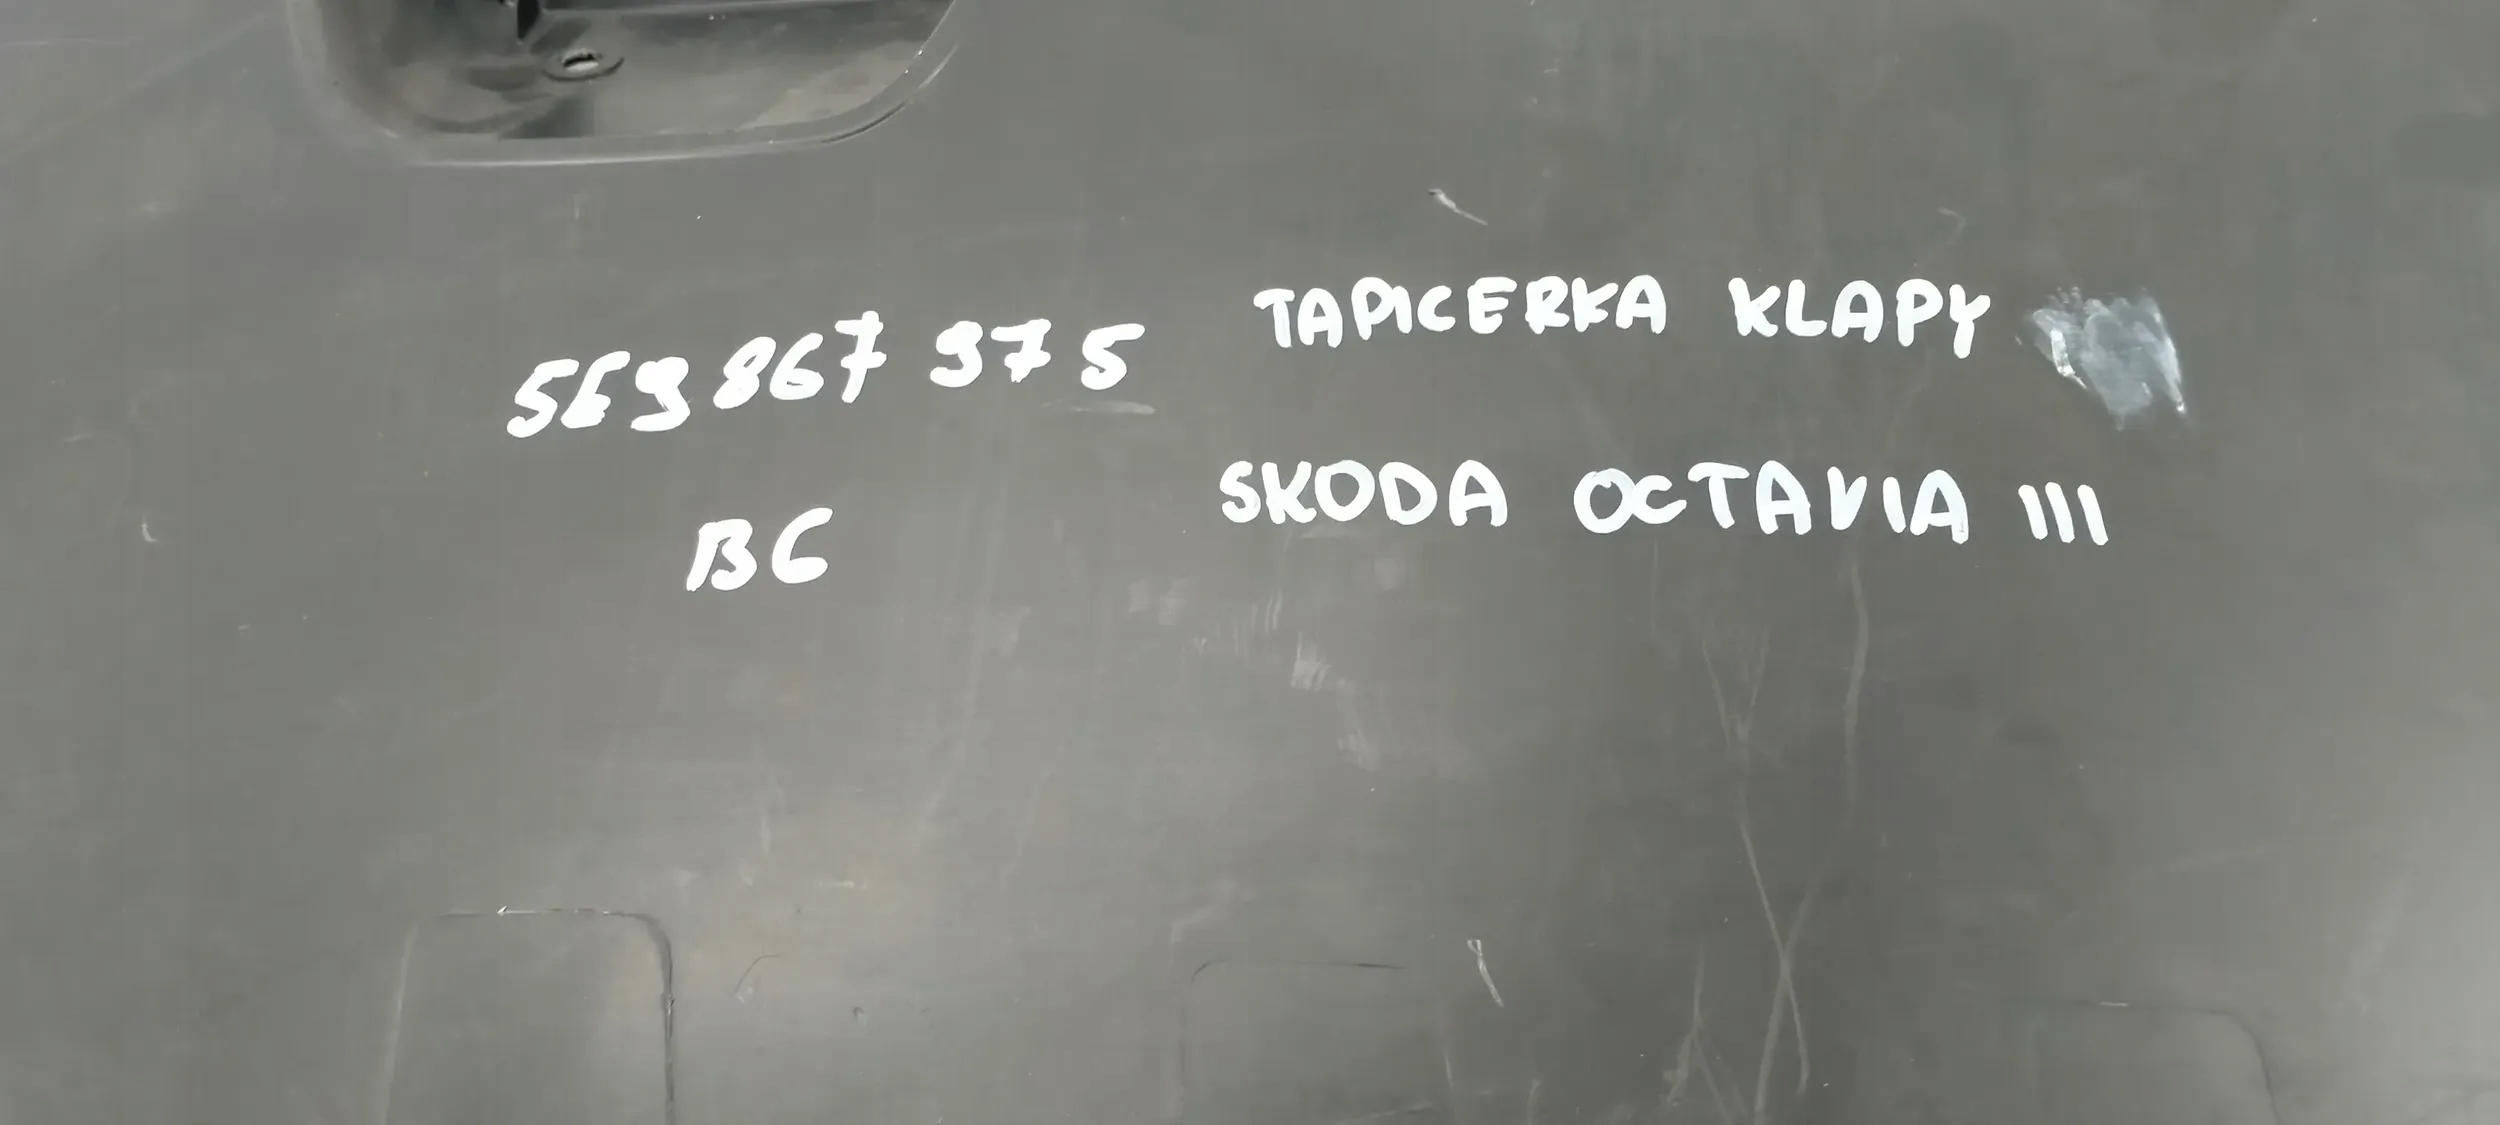 5E9 867 975
BC
TAPICERKA KLAPY
SKODA OCTAVIA III